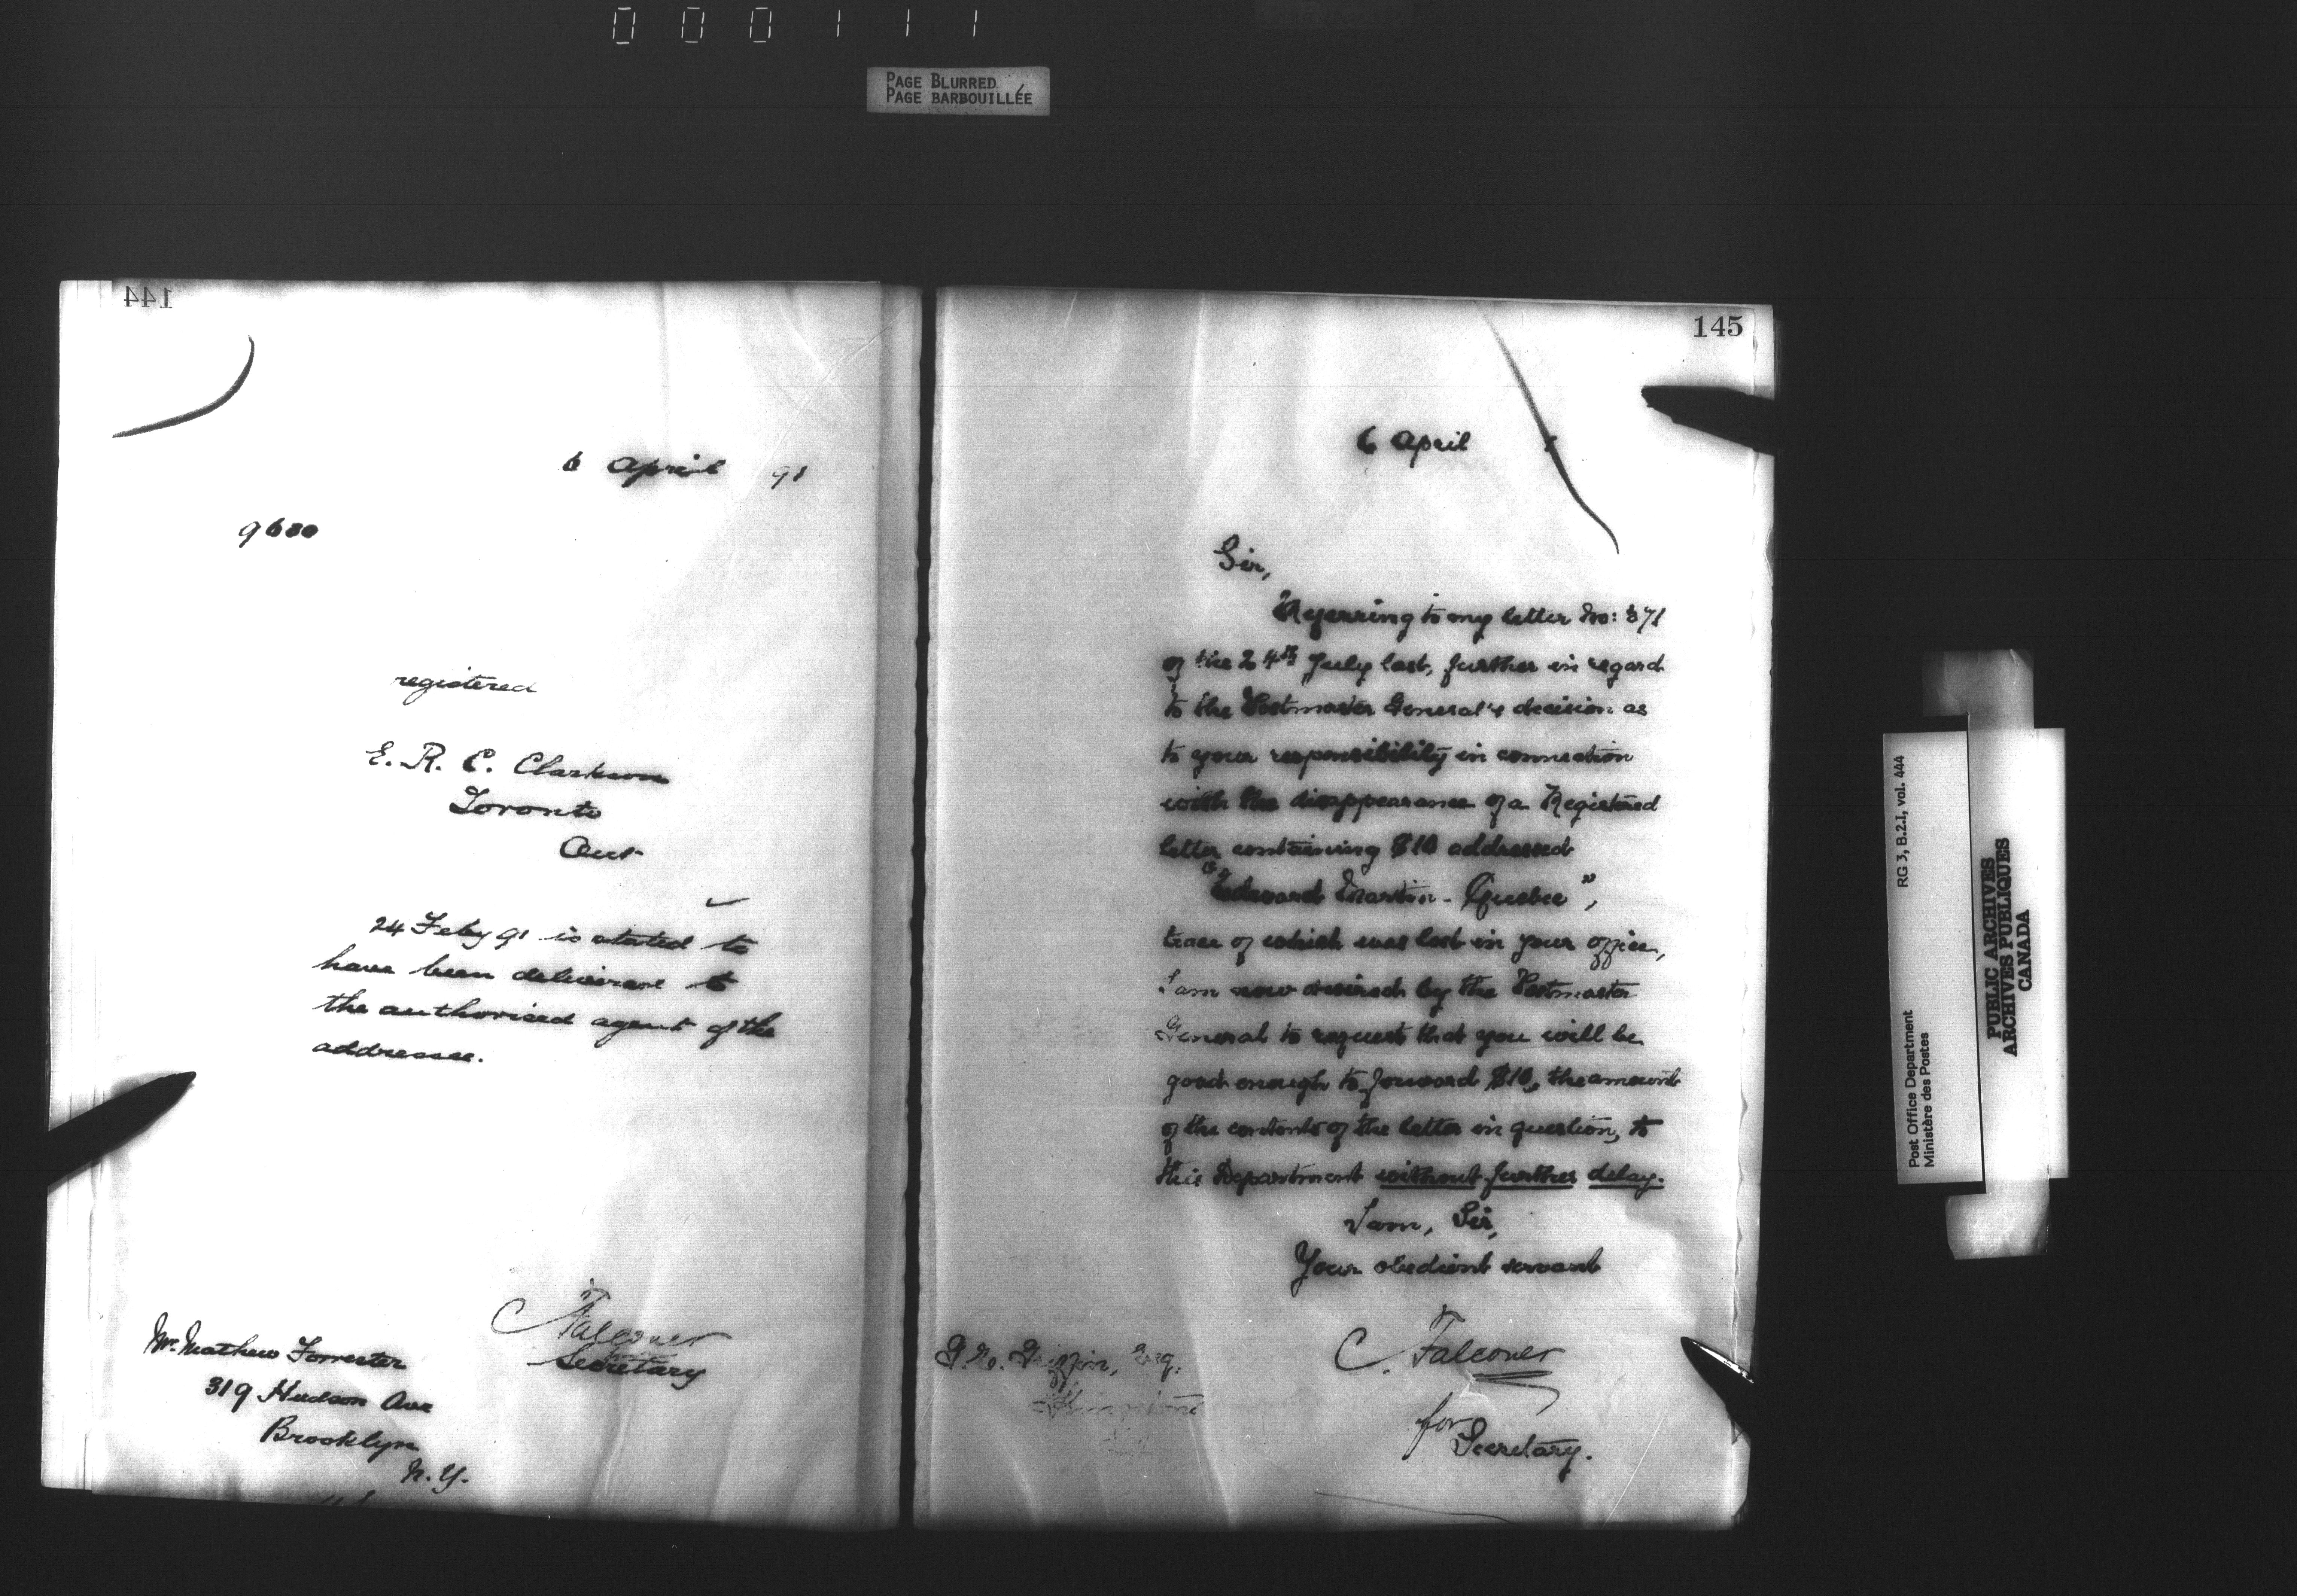 000111
PAGE BLURRED
PAGE BARBOUILLÉE
144
6 April 91
9680
registered
E. R. C. Clarkson
Toronto
Ont
24 Feby 91 is stated to
have been delivered to
the authorised agent of the
addressee.
C Falconer
Secretary
Mr. Mathew Forrester
319 Hudson Ave
Brooklyn
N. Y.
145
6 April
Sir,
Referring to my letter No: 371
of the 24th July last, further in regard
to the Postmaster General's decision as
to your responsibility in connection
with the disappearance of a Registered
letter containing $10 addressed
"Edward Martin - Quebec",
trace of which was lost in your office,
I am now desired by the Postmaster
General to request that you will be
good enough to forward $10, the amount
of the contents of the letter in question, to
this Department without further delay.
I am, Sir,
Your obedient servant
C. Falconer
for
Secretary.
Griffin, Esq.
RG 3, B.2.I, vol. 444
Post Office Department
Ministère des Postes
PUBLIC ARCHIVES
ARCHIVES PUBLIQUES
CANADA